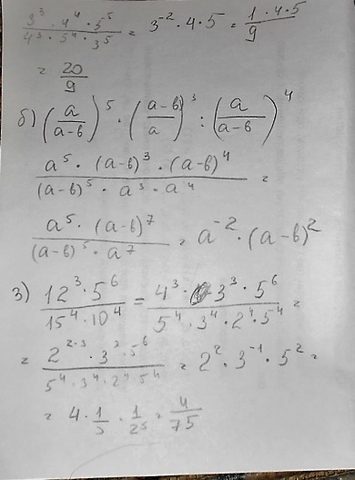 3³ · 4⁴ · 5⁵ / 4³ · 5⁴ · 3⁵ = 3⁻² · 4 · 5 = 1 · 4 · 5 / 9
= 20/9
б) (a/(a-в))⁵ · ((a-в)/a)³ : (a/(a-в))⁴
a⁵ · (a-в)³ · (a-в)⁴ / (a-в)⁵ · a³ · a⁴ =
a⁵ · (a-в)⁷ / (a-в)⁵ · a⁷ = a⁻² · (a-в)²
3) 12³ · 5⁶ / 15⁴ · 10⁴ = 4³ · 3³ · 5⁶ / 5⁴ · 3⁴ · 2⁴ · 5⁴ =
= 2²·³ · 3³ · 5⁶ / 5⁴ · 3⁴ · 2⁴ · 5⁴ = 2² · 3⁻¹ · 5² =
= 4 · 1/3 · 1/25 = 4/75